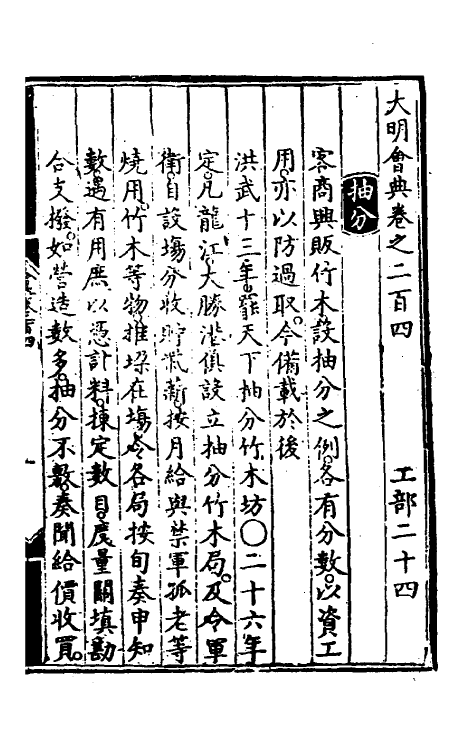 大明會典卷之二百四　工部二十四
抽分
客商興販竹木設抽分之例。各有分數。以資工
用。亦以防過取。今備載於後
洪武十三年。罷天下抽分竹木坊○二十六年
定。凡龍江大勝港俱設立抽分竹木局。及令軍
衛自設場分收貯柴薪。按月給與禁軍孤老等
燒用。竹木等物。堆垛在場。令各局按旬奏申知
數。遇有用度以憑計料。揀定數目。度量關填勘
合支撥。如營造數多。抽分不敷。奏聞給價收買。